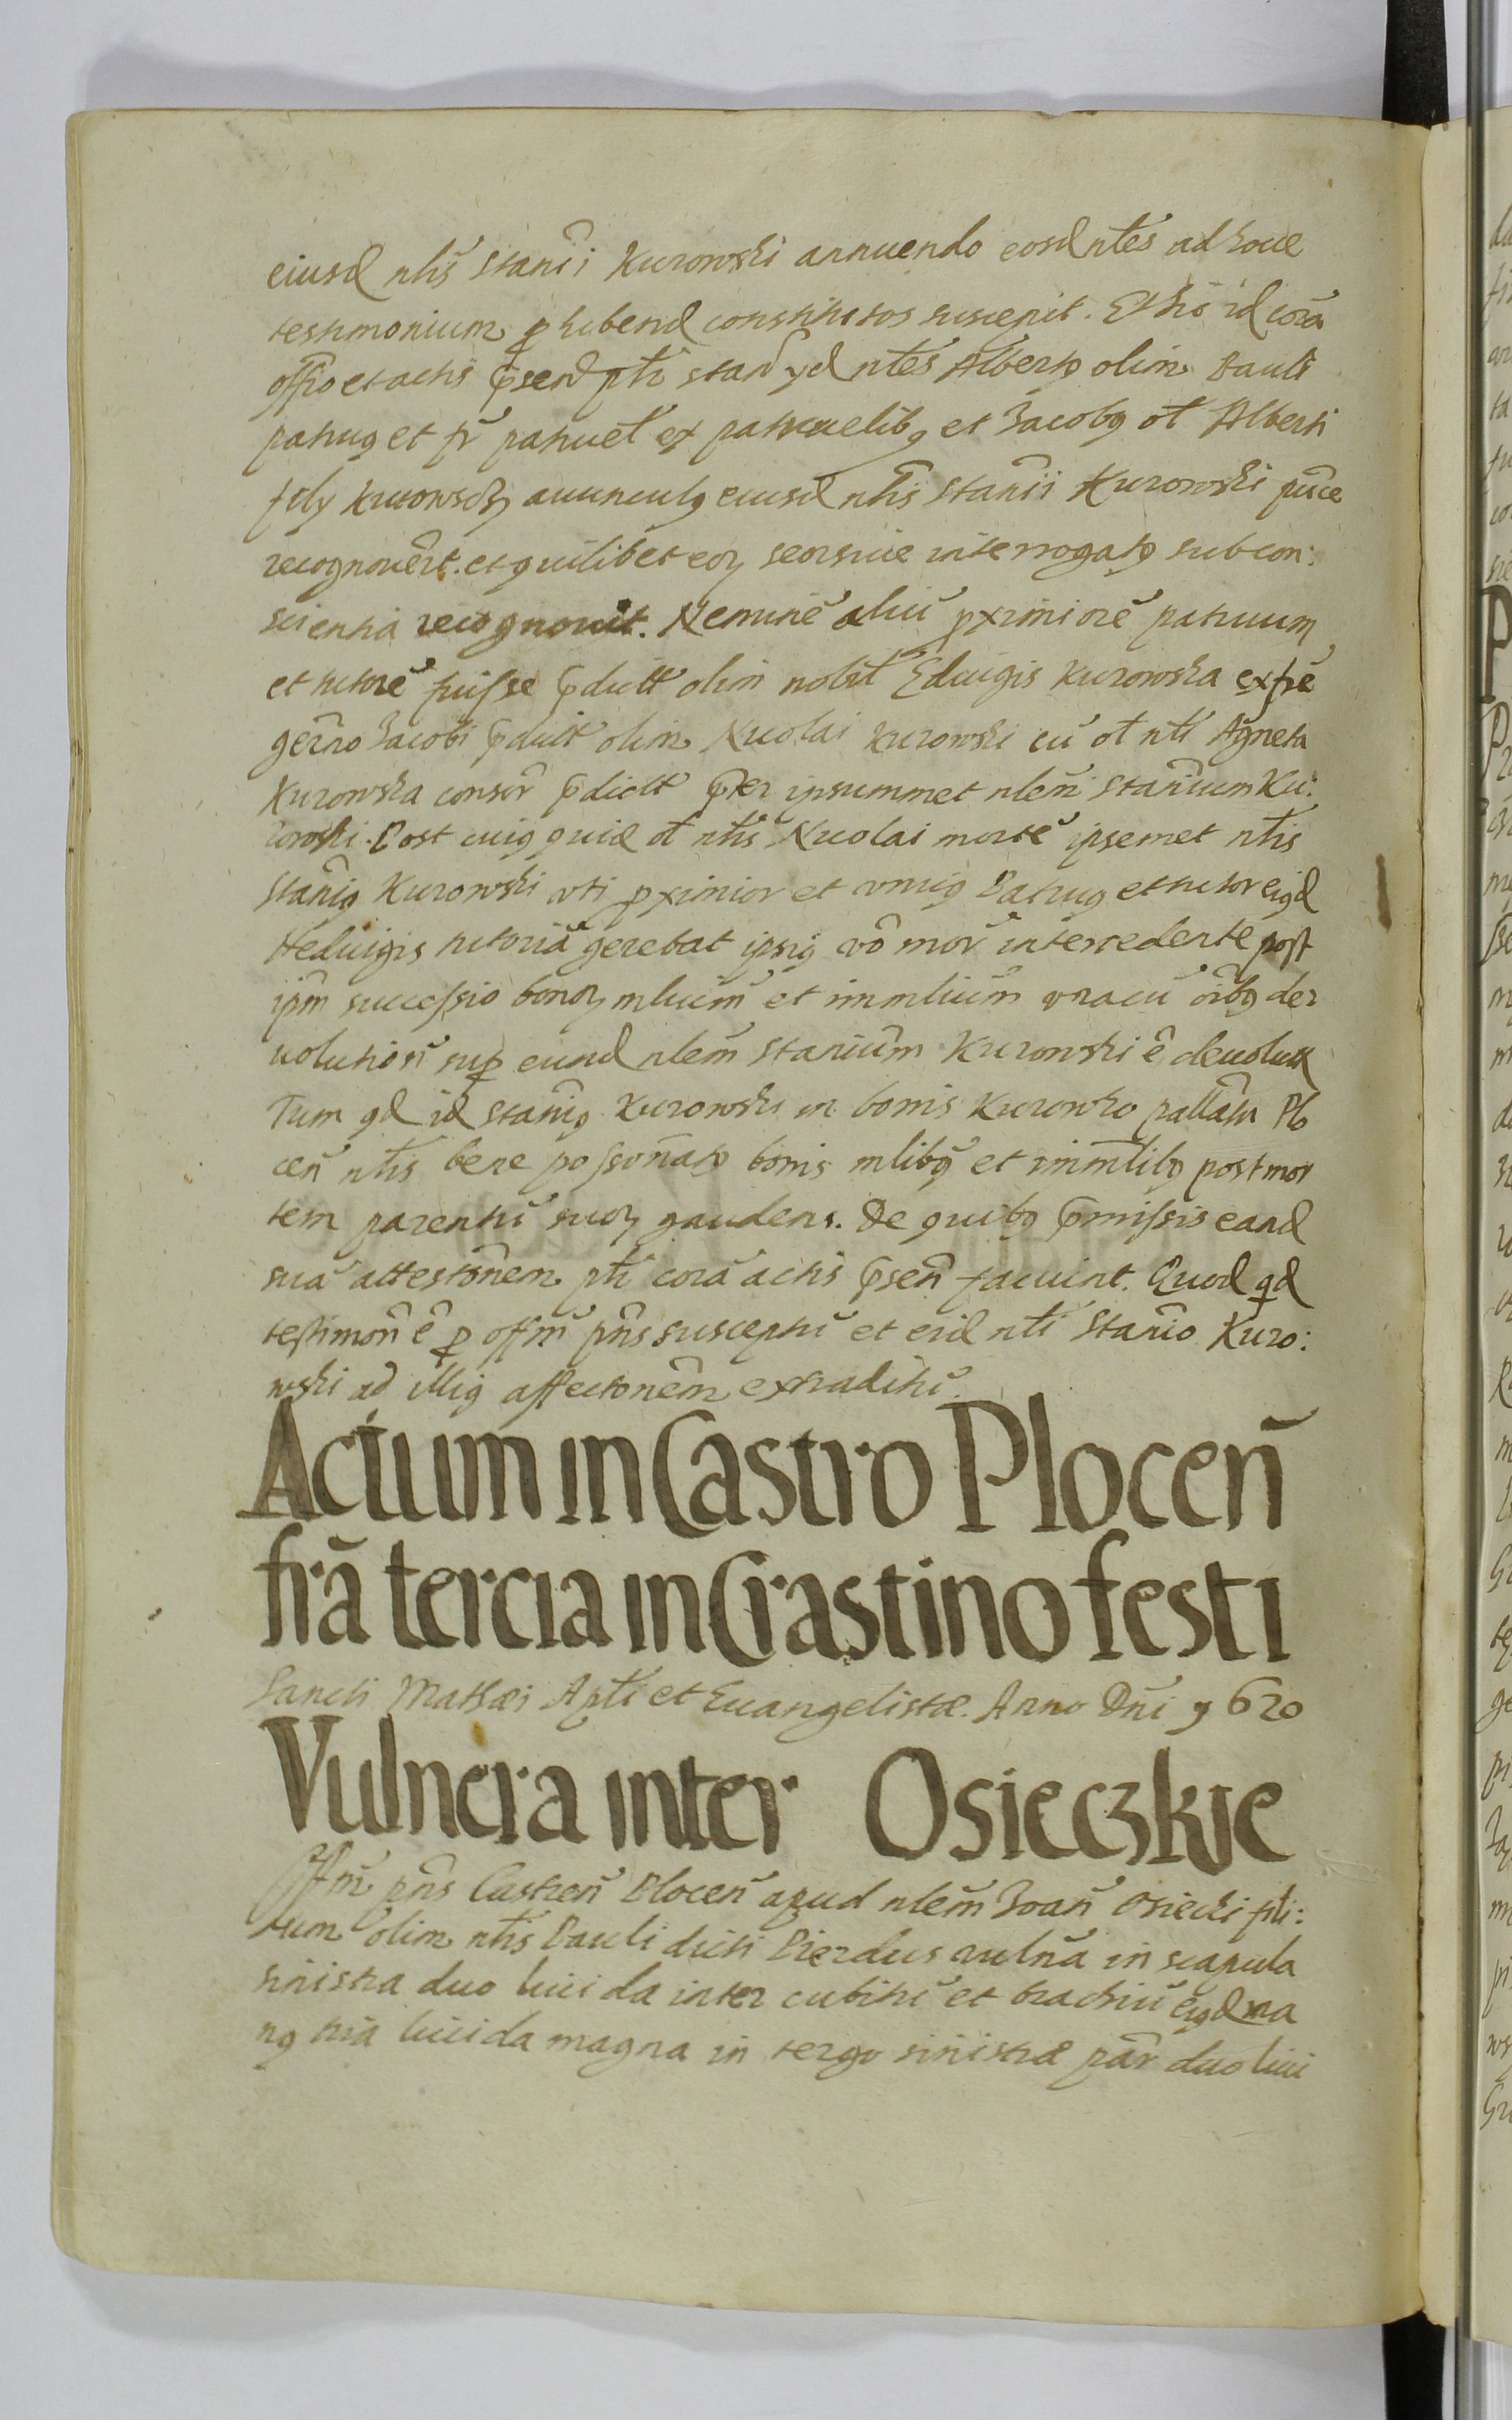 eiusd nłis Stanii Kurowski annuendo eosd ntes ad hoce
testimonium phibend constitutos suscepit. Et hoc id cora
officio et actis psend pti stand yd ntes Albertus olim Pauli
patruus et fr patruel ex patruelibus et Jacobus ol Alberti
filij Kurowscy auunculus eiusd nłis Stanii Kurowski
recognouert. et quilibet eor seorsiue interrogatus sub con:
scientia recognouit. Neminē aliū pximiorē patruum
et tutorē fuisse pdict olim nobil Eduigis Kurowska ex frē
germo Jacobi pdict olim Nicolai Kurowski cū ol ntī Agneta
Kurowska consor pdict pter ipsummet nlem Stanium Ku:
rowski. Post cuius quidē ol nłis Nicolai mortē ipsemet nłis
Stanius Kurowski vti pximior et vnicus Patruus et tutor eiusd
Heduigis tutoriā gerebat ipsius vō mor intercedente post
ipm successio bonor mliūm et immliūm vnacū oībus der
uolutioni sup eund nlem Stanium Kurowski ē deuolut
Tum qd id Stanius Kurowski in bonis Kurowko pallātu Plo
cen nłis bene possonatus bonis mlibus et immlibus post mor
tem parentū suor gaudens. De quibus pmissis eand
suā attestonem ptī corā actis psen faciunt. Quod qd
testimon ē p offm pns susceptū et eid ntī Stanio Kuro:
wski ad illius affectonem extraditū.
Actum in Castro Plocen̄
frā tercia in Crastino festi
Sancti Mathæi Aptī et Euangelistæ. Anno Dn̄i 1620
Vulnera inter Osieczkie
Offm pns Castren Plocen apud nlem Joan Osiecki fili:
um olim nłis Pauli dicti Pierdus vulnā in scapula
sinistra duo liuida inter cubitū et brachiū eiusd ma
nus tria liuida magna in tergo sinistræ par duo liui